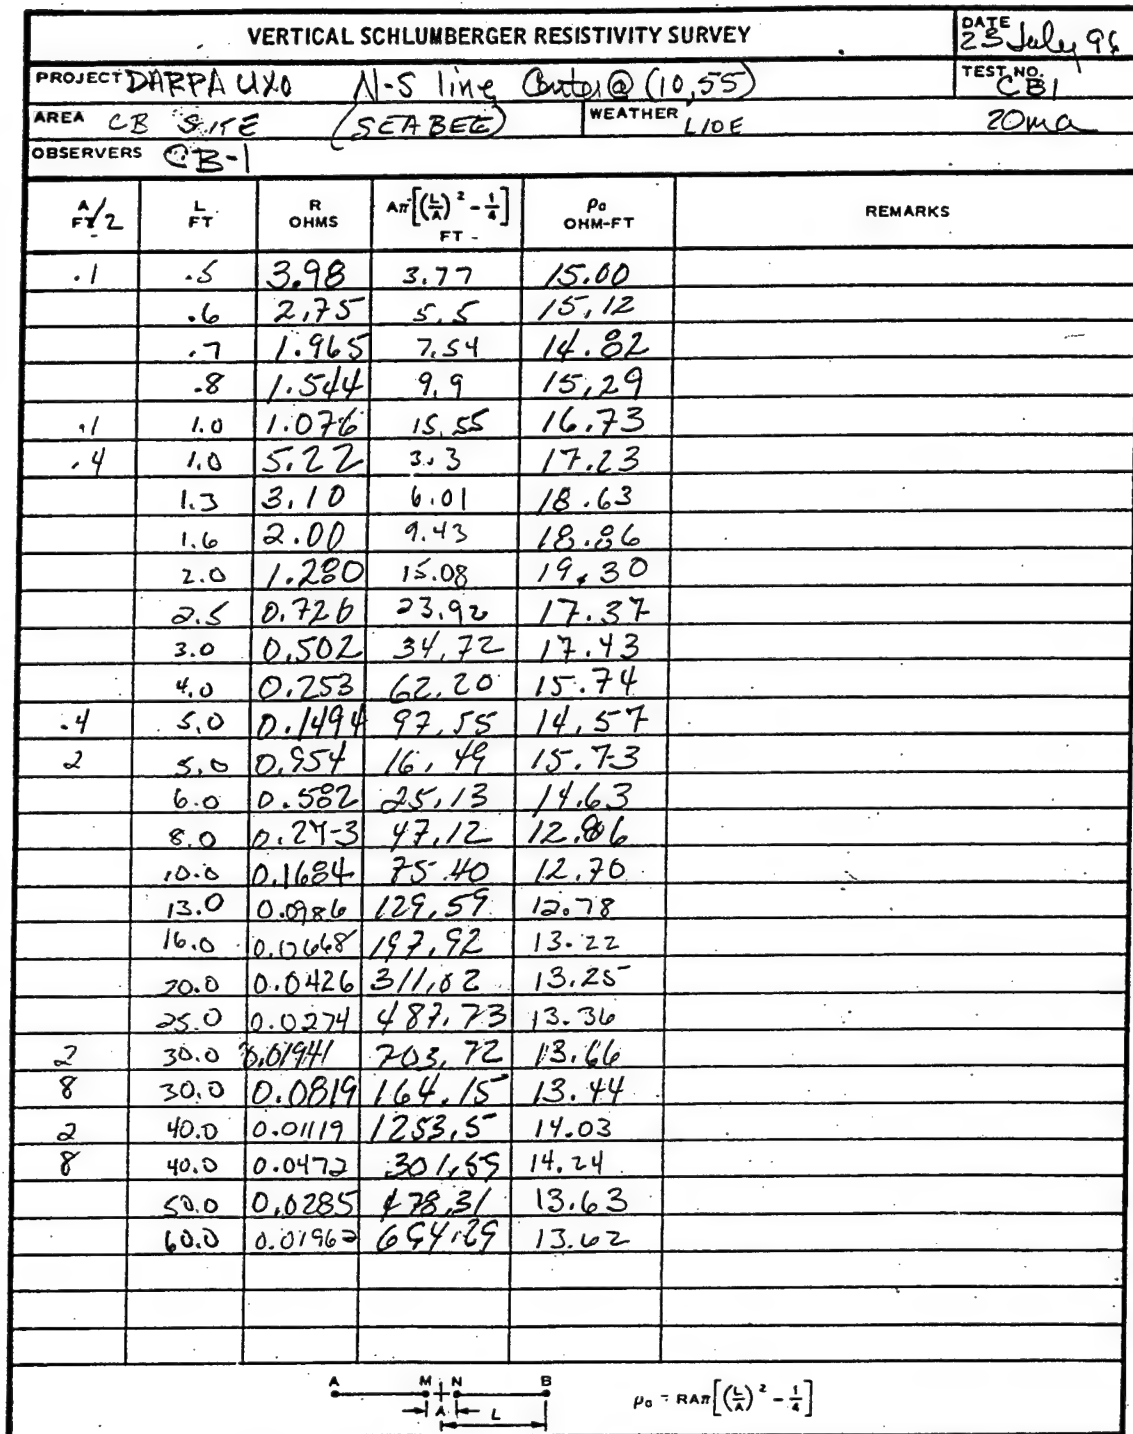 VERTICAL SCHLUMBERGER RESISTIVITY SURVEY DATE 23 July 96
PROJECT DARPA UXO N-S line Center @ (10,55) TEST NO. CB1
AREA CB SITE (SEABEE) WEATHER 20ma
OBSERVERS CB-1
A/2 FT L FT R OHMS Aπ[(L/A)² - 1/4] FT - ρa OHM-FT REMARKS
.1 .5 3.98 3.77 15.00
.6 2.75 5.5 15.12
.7 1.965 7.54 14.82
.8 1.544 9.9 15.29
.1 1.0 1.076 15.55 16.73
.4 1.0 5.22 3.3 17.23
1.3 3.10 6.01 18.63
1.6 2.00 9.43 18.86
2.0 1.280 15.08 19.30
2.5 0.726 23.92 17.37
3.0 0.502 34.72 17.43
4.0 0.253 62.20 15.74
.4 5.0 0.1494 97.55 14.57
2 5.0 0.954 16.49 15.73
6.0 0.582 25.13 14.63
8.0 0.273 47.12 12.86
10.0 0.1684 75.40 12.70
13.0 0.0986 129.59 12.78
16.0 0.0668 197.92 13.22
20.0 0.0426 311.02 13.25
25.0 0.0274 487.73 13.36
2 30.0 0.01941 703.72 13.66
8 30.0 0.0819 164.15 13.44
2 40.0 0.01119 1253.5 14.03
8 40.0 0.0472 301.59 14.24
50.0 0.0285 478.31 13.63
60.0 0.01962 694.29 13.62
A M N B
A L ρa = RAπ[(L/A)² - 1/4]